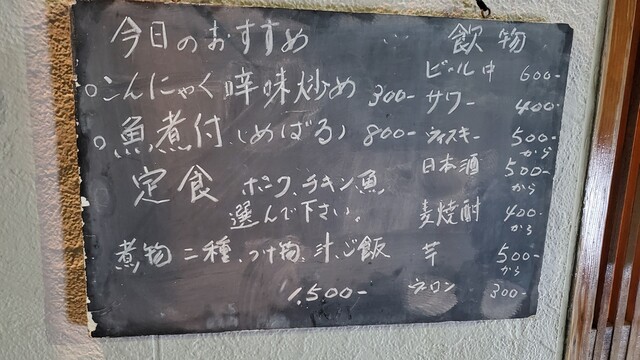 今日のおすすめ
○こんにゃく辛味炒め 300-
○魚煮付(めばる) 800-
定食 ポーク、チキン、魚
選んで下さい。
煮物二種、つけ物、汁、ご飯
1,500-
飲物
ビール中 600-
サワー 400-
ウィスキー 500-から
日本酒 500-から
麦焼酎 400-から
芋 500-から
300-